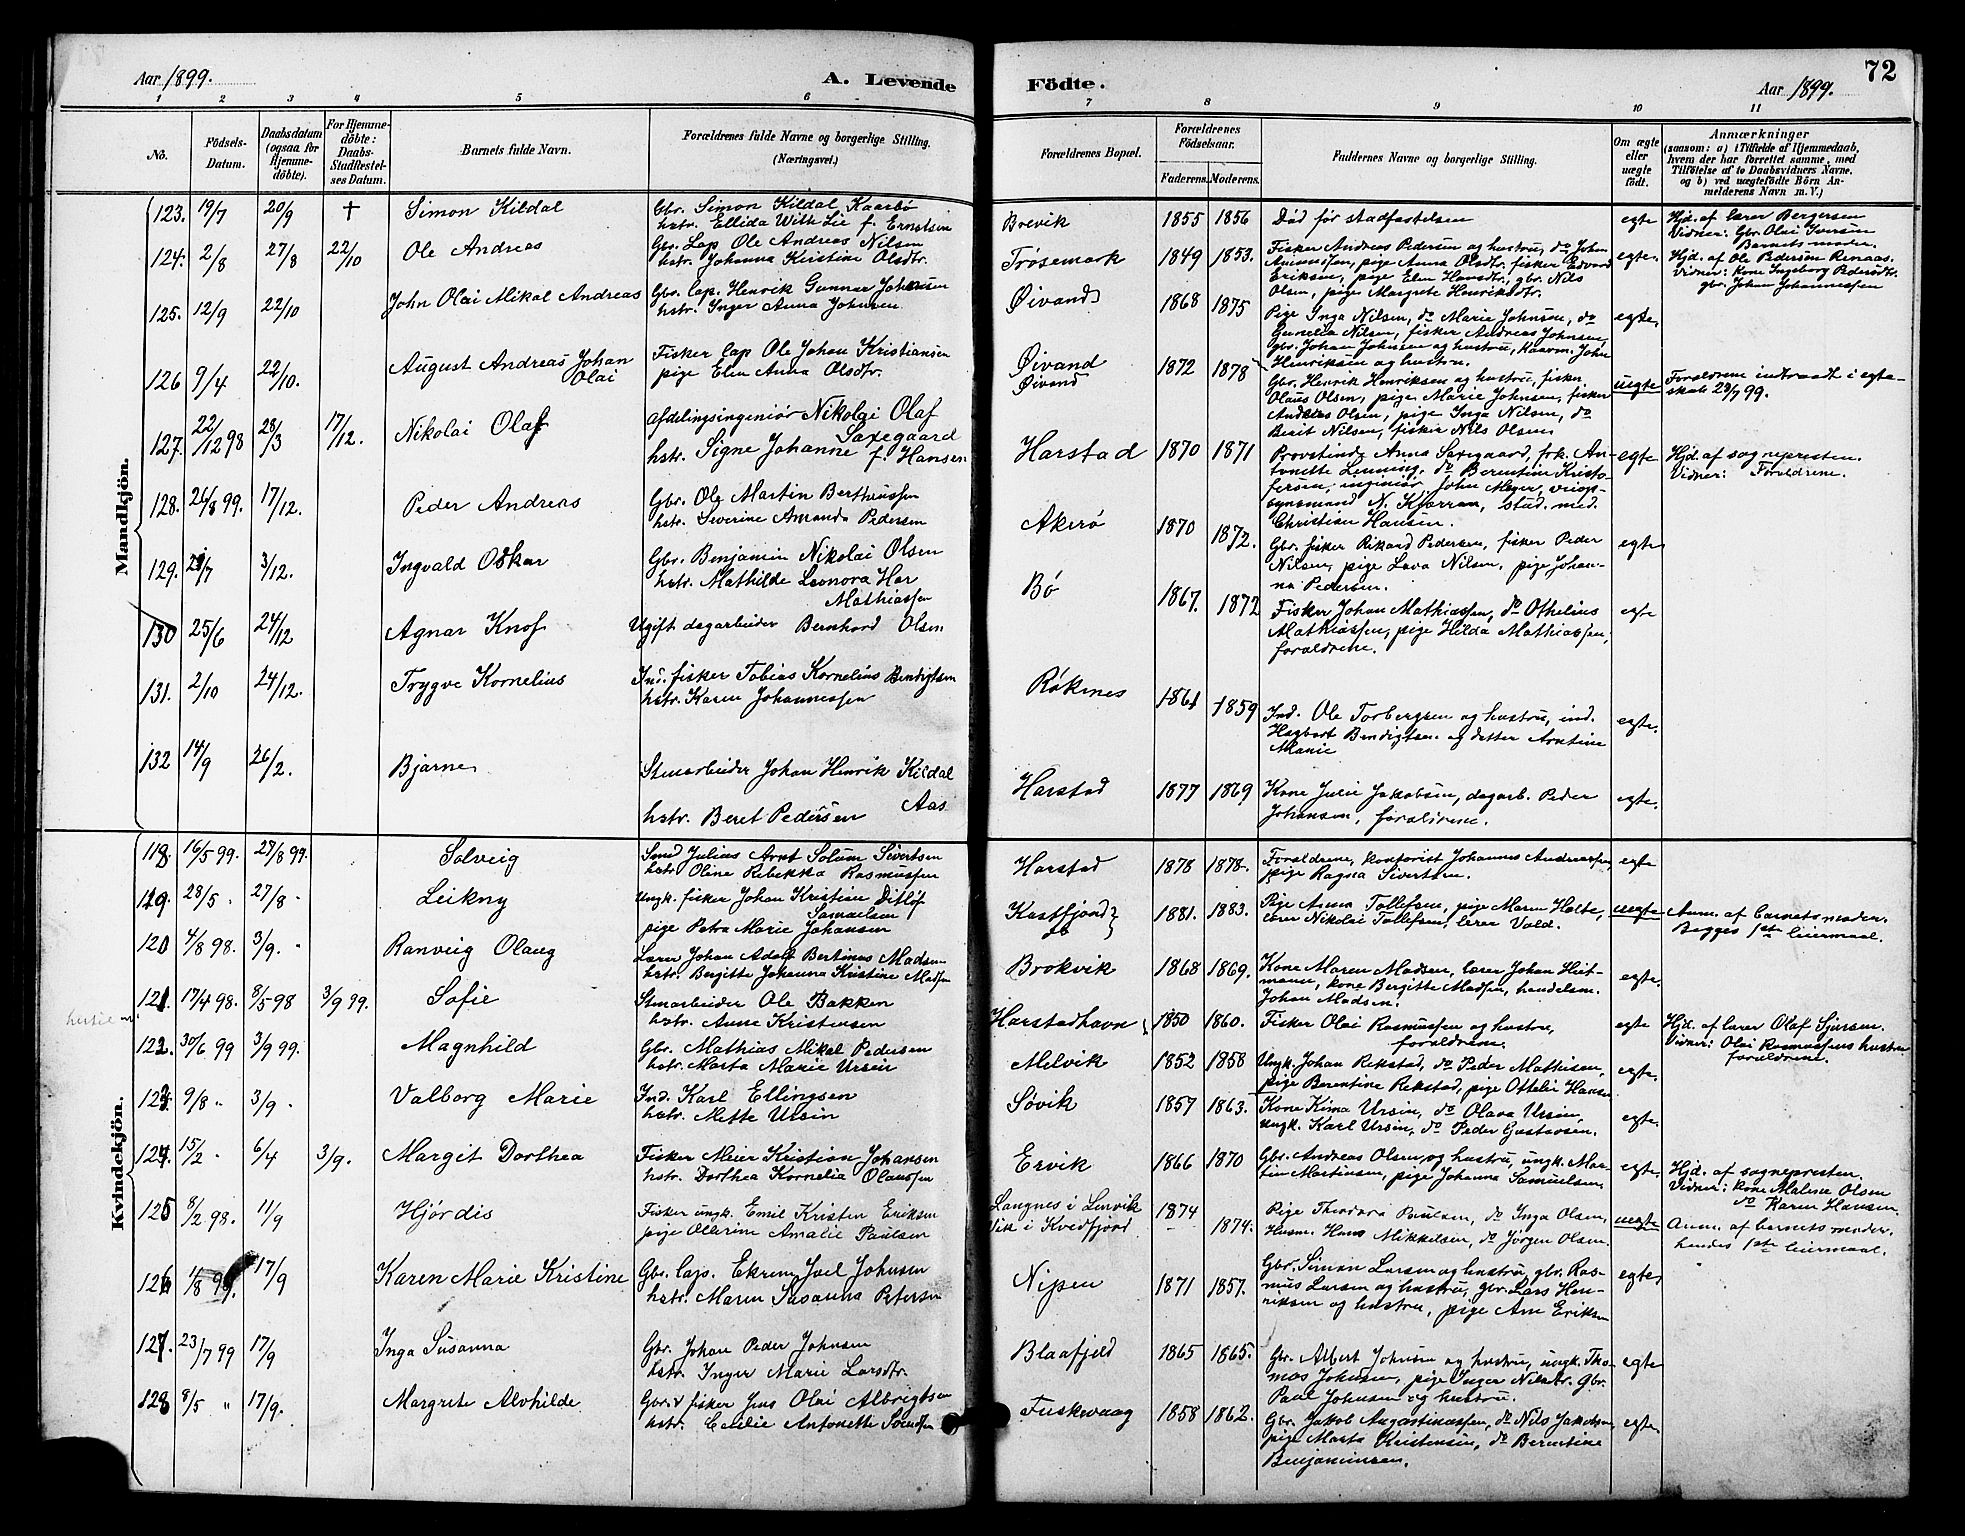 Aar 1899.
A. Levende
Födte.
Aar 1899.
72
1 2 3 4 5 6 7 8 9 10 11
No.
Födsels-Datum.
Daabsdatum (ogsaa for Hjemmedöbte).
For Hjemmedöbte: Daabs-Stadfæstelses Datum.
Barnets fulde Navn.
Forældrenes fulde Navne og borgerlige Stilling. (Næringsvei.)
Forældrenes Bopæl.
Forældrenes Födselsaar.
Faderens. Moderens.
Faddernes Navne og borgerlige Stilling.
Om ægte eller uægte födt.
Anmærkninger (saasom: a) i Tilfælde af Hjemmedaab, hvem der har forrettet samme, med Tilföielse af to Daabsvidners Navne, og b) ved uægtefödte Börn Anmelderens Navn m. V.)
Mandkjön.
123. 19/7 20/9 † Simon Kildal
Gbr. Simon Kildal Kaarbø
hstr. Ellida With Lie f. Erntsen
Brevik 1855 1856 Død før stadfæstelsen egte
Hjd. af lærer Bergersen
Vidner: Gbr. Olai Iversen
Barnets moder.
124. 2/8 27/8 22/10 Ole Andreas
Gbr. Lap Ole Andreas Nilsen
hstr. Johanna Kristine Olsdtr.
Trøsemark 1849 1853.
Fisker Andreas Pedersen og hustru, do John
pige Anna Olsdtr. fisker Edvard
Eriksen, pige Elen Hansdtr., gbr. Nils
Olsen, pige Margrete Henriksdtr.
egte.
Hjd. af Ole Pedersøn Renaas.
Vidner: Kone Ingeborg Pedersdtr.
gbr. Johan Johannessen
125. 12/9 22/10 John Olai Mikal Andreas
Gbr. Lap. Henrik Gunnar Johnsen
hstr. Inger Anna Johnsen
Øivand 1868 1875
Pige Inga Nilsen, do Marie Johnsen, do
Gunelia Nilsen, fisker Andreas Johnsen,
gbr. Johan Johnsen og hustru, Kaarm. John
Henriksen og hustru.
egte.
126 9/4 22/10. August Andreas Johan Olai
Fisker Lap Ole Johan Kristiansen
pige Elen Anna Olsdtr.
Øivand
Øivand
1872 1878
Gbr. Henrik Henriksen og hustru, fisker
Olaus Olsen, pige Marie Johnsen, fisker
Andreas Olsen, pige Inga Nilsen, do
Berit Nilsen, fisker Nils Olsen.
uegte
Forældrene indtraadt i egteskab 29/7 99.
127. 22/12 98 28/3 17/12. Nikolai Olaf
Afdelingsingeniør Nikolai Olaf Saxegaard
hstr. Signe Johanne f. Hansen
Harstad 1870 1871
Provstinde Anna Saxegaard, frk. Antonette Lemming, do Berentine Kristofersen, ingeniør John Meyer, veiopsynsmand N. Kjærran, stud. med.
Christian Hansen.
egte
Hjd. af sognepresten.
Vidner: Forældrene.
128. 26/8 99. 17/12. Peder Andreas
Gbr. Ole Martin Bertheussen
hstr. Severine Amanda Pedersen
Akerø 1870 1872.
Gbr. fisker Rikard Pedersen, fisker Peder
Nilsen, pige Lava Nilsen, pige Johanna Pedersen.
egte
129. 29/7 3/12. Ingvald Oskar
Gbr. Benjamin Nikolai Olsen
hstr. Mathilde Leonora Har
Mathiassen
Bø 1867. 1872
Fisker Johan Mathiassen, do Othelius
Mathiassen, pige Hilda Mathiassen,
forældrene.
egte
130 25/6 24/12 Agnar Knof
Ugift dagarbeider Bernhard Olsen
131. 2/10 24/12. Trygve Kornelius
Ind. fisker Tobias Kornelius Bendigtsen
hstr. Karen Johannessen
Røkenes 1861 1859
Ind. Ole Torbergsen og hustru, ind.
Hagbart Bendigtsen og datter Arntine
Marie
egte.
132 14/9 26/2. Bjarne
Stenarbeider Johan Henrik Kildal Aas
hstr. Beret Pedersen
Harstad 1877 1869
Kone Julie Jakobsen, dagarb. Peder
Johansen, forældrene.
egte.
Kvindekjön.
118. 16/5 99. 27/8 99. Solveig
Smed Julius Arnt Solum Sivertsen
hstr Oline Rebekka Rasmussen
Harstad 1878 1878.
Forældrene, kontorist Johannes Andreassen,
pige Ragna Sivertsen.
egte
119. 28/5 27/8 Leikny
Ungk. fisker Johan Kristian Ditlöf Samuelsen
pige Petra Marie Johansen
Kastfjord
do
1881. 1883.
Pige Anna Tollefsen, pige Maren Holte,
lærer Nikolai Tollefsen, lærer Vold.
uegte
Anm. af barnets moder.
Begges 1ste leiermaal.
120 4/8 98. 3/9. Ranveig Olaug
Lærer Johan Adolf Bertinus Madsen
hstr. Bergitte Johanna Kristine Madsen
Brokvik 1868 1869.
Kone Maren Madsen, lærer Johan Heitmann, kone Bergitte Madsen, handelsm.
Johan Madsen.
egte.
121. 17/4 98. 8/5 98 3/9 99. Sofie
Stenarbeider Ole Bakken
hstr. Anne Kristensen
Harstadhavn 1850 1860.
Fisker Olai Rasmussen og hustru,
forældrene.
egte
Hjd. af lærer Olaf Sjursen.
Vidner: Olai Rasmussens hustru
forældrene.
122. 30/6 99 3/9 99. Magnhild
Gbr. Mathias Mikal Pedersen
hstr. Marta Marie Ursin
Melvik 1852 1858
Ungk. Johan Rekstad, do Peder Mathisen,
pige Berentine Rekstad, pige Ottelie Hansen
egte.
123. 9/8 3/9 Valborg Marie
Ind. Karl Ellingsen
hstr. Mette Ursin
Søvik 1857 1863.
Kone Kima Ursin, do Olava Ursin,
ungk. Karl Ursin, do Peder Gustavsen.
egte.
124. 15/2 6/4 3/9. Margit Dorthea
Fisker Meier Kristian Johansen
hstr. Dorthea Kornelia Olaussen
Ervik 1866 1870
Gbr. Andreas Olsen og hustru, ungk. Martin Martinsen, pige Johanna Samuelsen.
egte.
Hjd. af sognepresten.
Vidner: kone Malene Olsen
do Karen Hansen.
125 8/2 98. 11/9 Hjørdis
Fisker ungk. Emil Kristen Eriksen
pige Oliane Amalie Paulsen
Langnes i Lenvik
Vik i Kvedfjord
1874 1874.
Pige Theodora Paulsen, do Inga Olsen,
Husm. Hans Mikkelsen, do Jørgen Olsen.
uegte
Anm. af barnets moder,
hendes 1ste leiermaal.
126 1/8 99. 17/9 Karen Marie Kristine
Gbr. Lap. Ekrem Joel Johnsen
hstr. Maren Susanna Petersen
Nipen 1871 1857.
Gbr. Simon Larsen og hustru, gbr. Rasmus Larsen og hustru, gbr. Lars Henriksen og hustru, pige Ane Eriksen
egte.
127. 23/7 99 17/9 Inga Susanna
Gbr. Johan Peder Johnsen
hstr. Inger Marie Larsdtr.
Blaafjeld 1865 1865.
Gbr. Albert Johnsen og hustru, ungk. Thomas Johnsen, pige Inger Nilsdtr. Gbr.
Paul Johnsen og hustru.
egte
128 8/5 17/9. Margrete Alvhilde
Gbr. fisker Jens Olai Albrigtsen
hstr. Cecilie Antonette Svendsen
Fuskevaag 1858 1862.
Gbr. Jakob Augustinussen, do Nils Jakobsen,
pige Marta Kristensen, do Berentine
Benjaminsen.
egte.